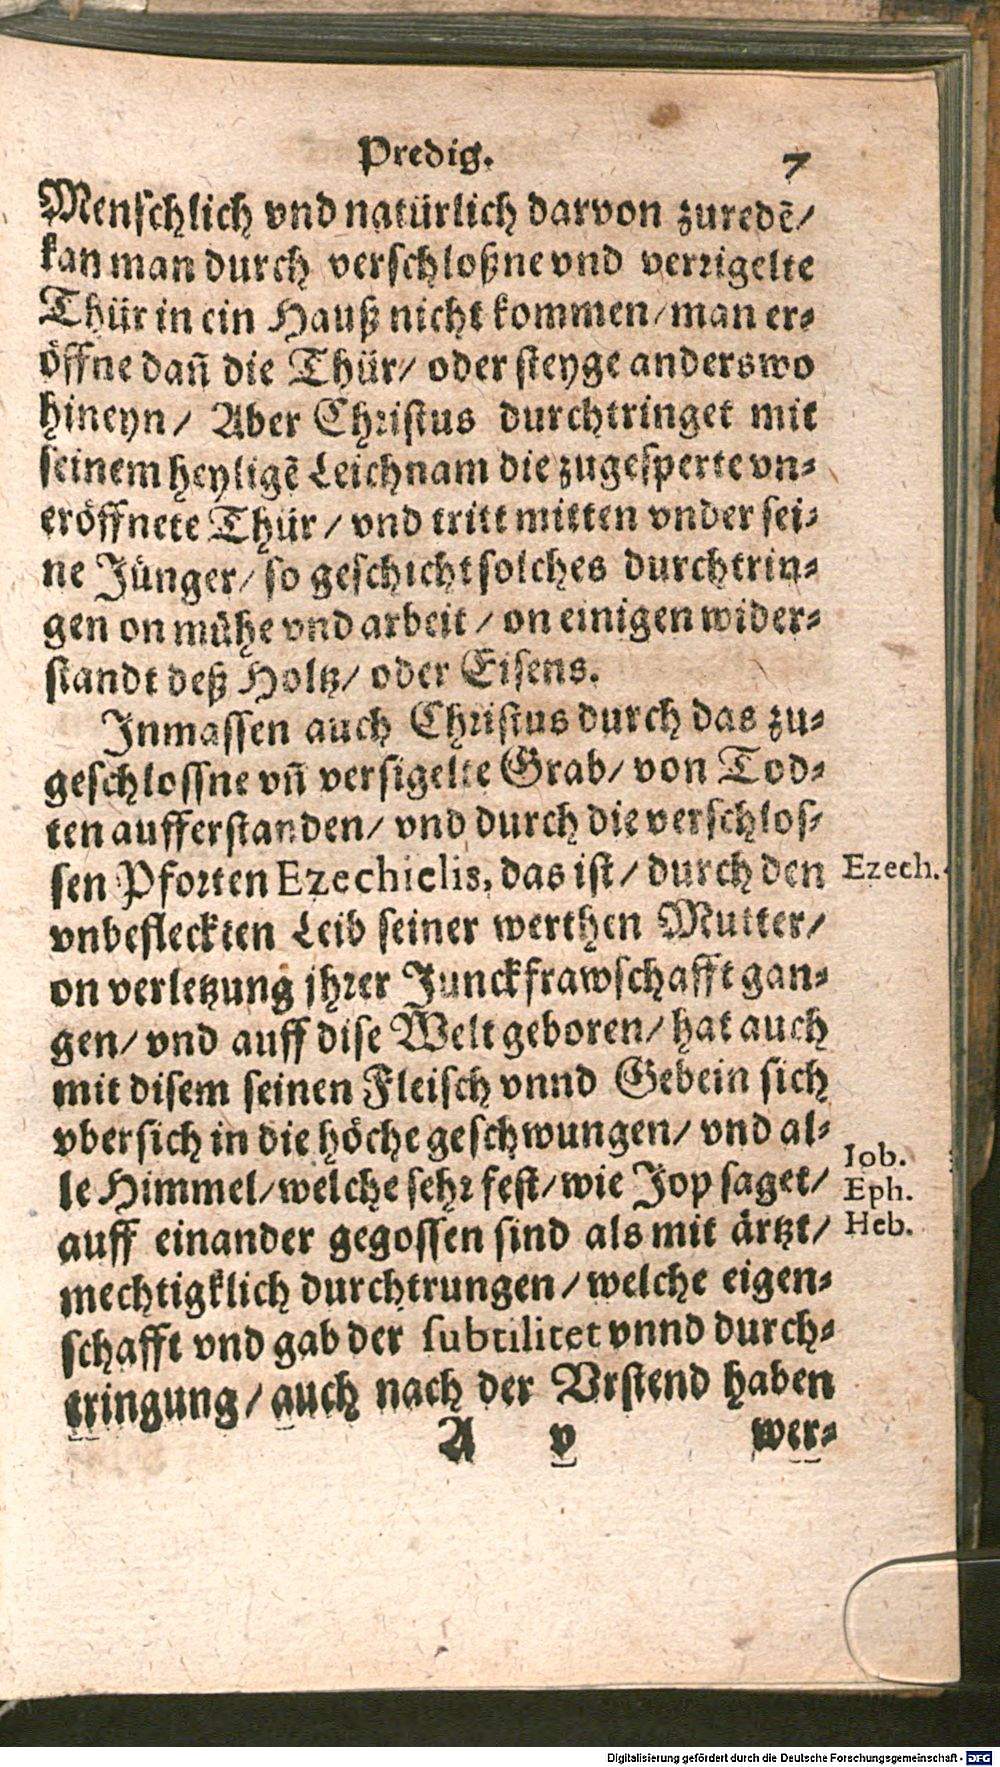 Predig. 7
Menschlich vnd natürlich darvon zuredē/
kan man durch verschloßne vnd verrigelte
Thür in ein Hauß nicht kommen/ man er-
öffne dañ die Thür/ oder steyge anderswo
hineyn/ Aber Christus durchtringet mit
seinem heyligē Leichnam die zugesperte vn-
eröffnete Thür/ vnd tritt mitten vnder sei-
ne Jünger/ so geschicht solches durchtrin-
gen on mühe vnd arbeit/ on einigen wider-
standt deß Holtz/ oder Eisens.
Inmassen auch Christus durch das zu-
geschlossne vñ versigelte Grab/ von Tod-
ten aufferstanden/ vnd durch die verschlos-
sen Pforten Ezechielis, das ist/ durch den
Ezech.
vnbefleckten Leib seiner werthen Mutter/
on verletzung jhrer Junckfrawschafft gan-
gen/ vnd auff dise Welt geboren/ hat auch
mit disem seinen Fleisch vnnd Gebein sich
vbersich in die höche geschwungen/ vnd al-
le Himmel/ welche sehr fest/ wie Jop saget/
Iob.
Eph.
Heb.
auff einander gegossen sind als mit ärtzt/
mechtigklich durchtrungen/ welche eigen-
schafft vnd gab der subtilitet vnnd durch-
tringung/ auch nach der Vrstend haben
A v wer-
Digitalisierung gefördert durch die Deutsche Forschungsgemeinschaft - DFG